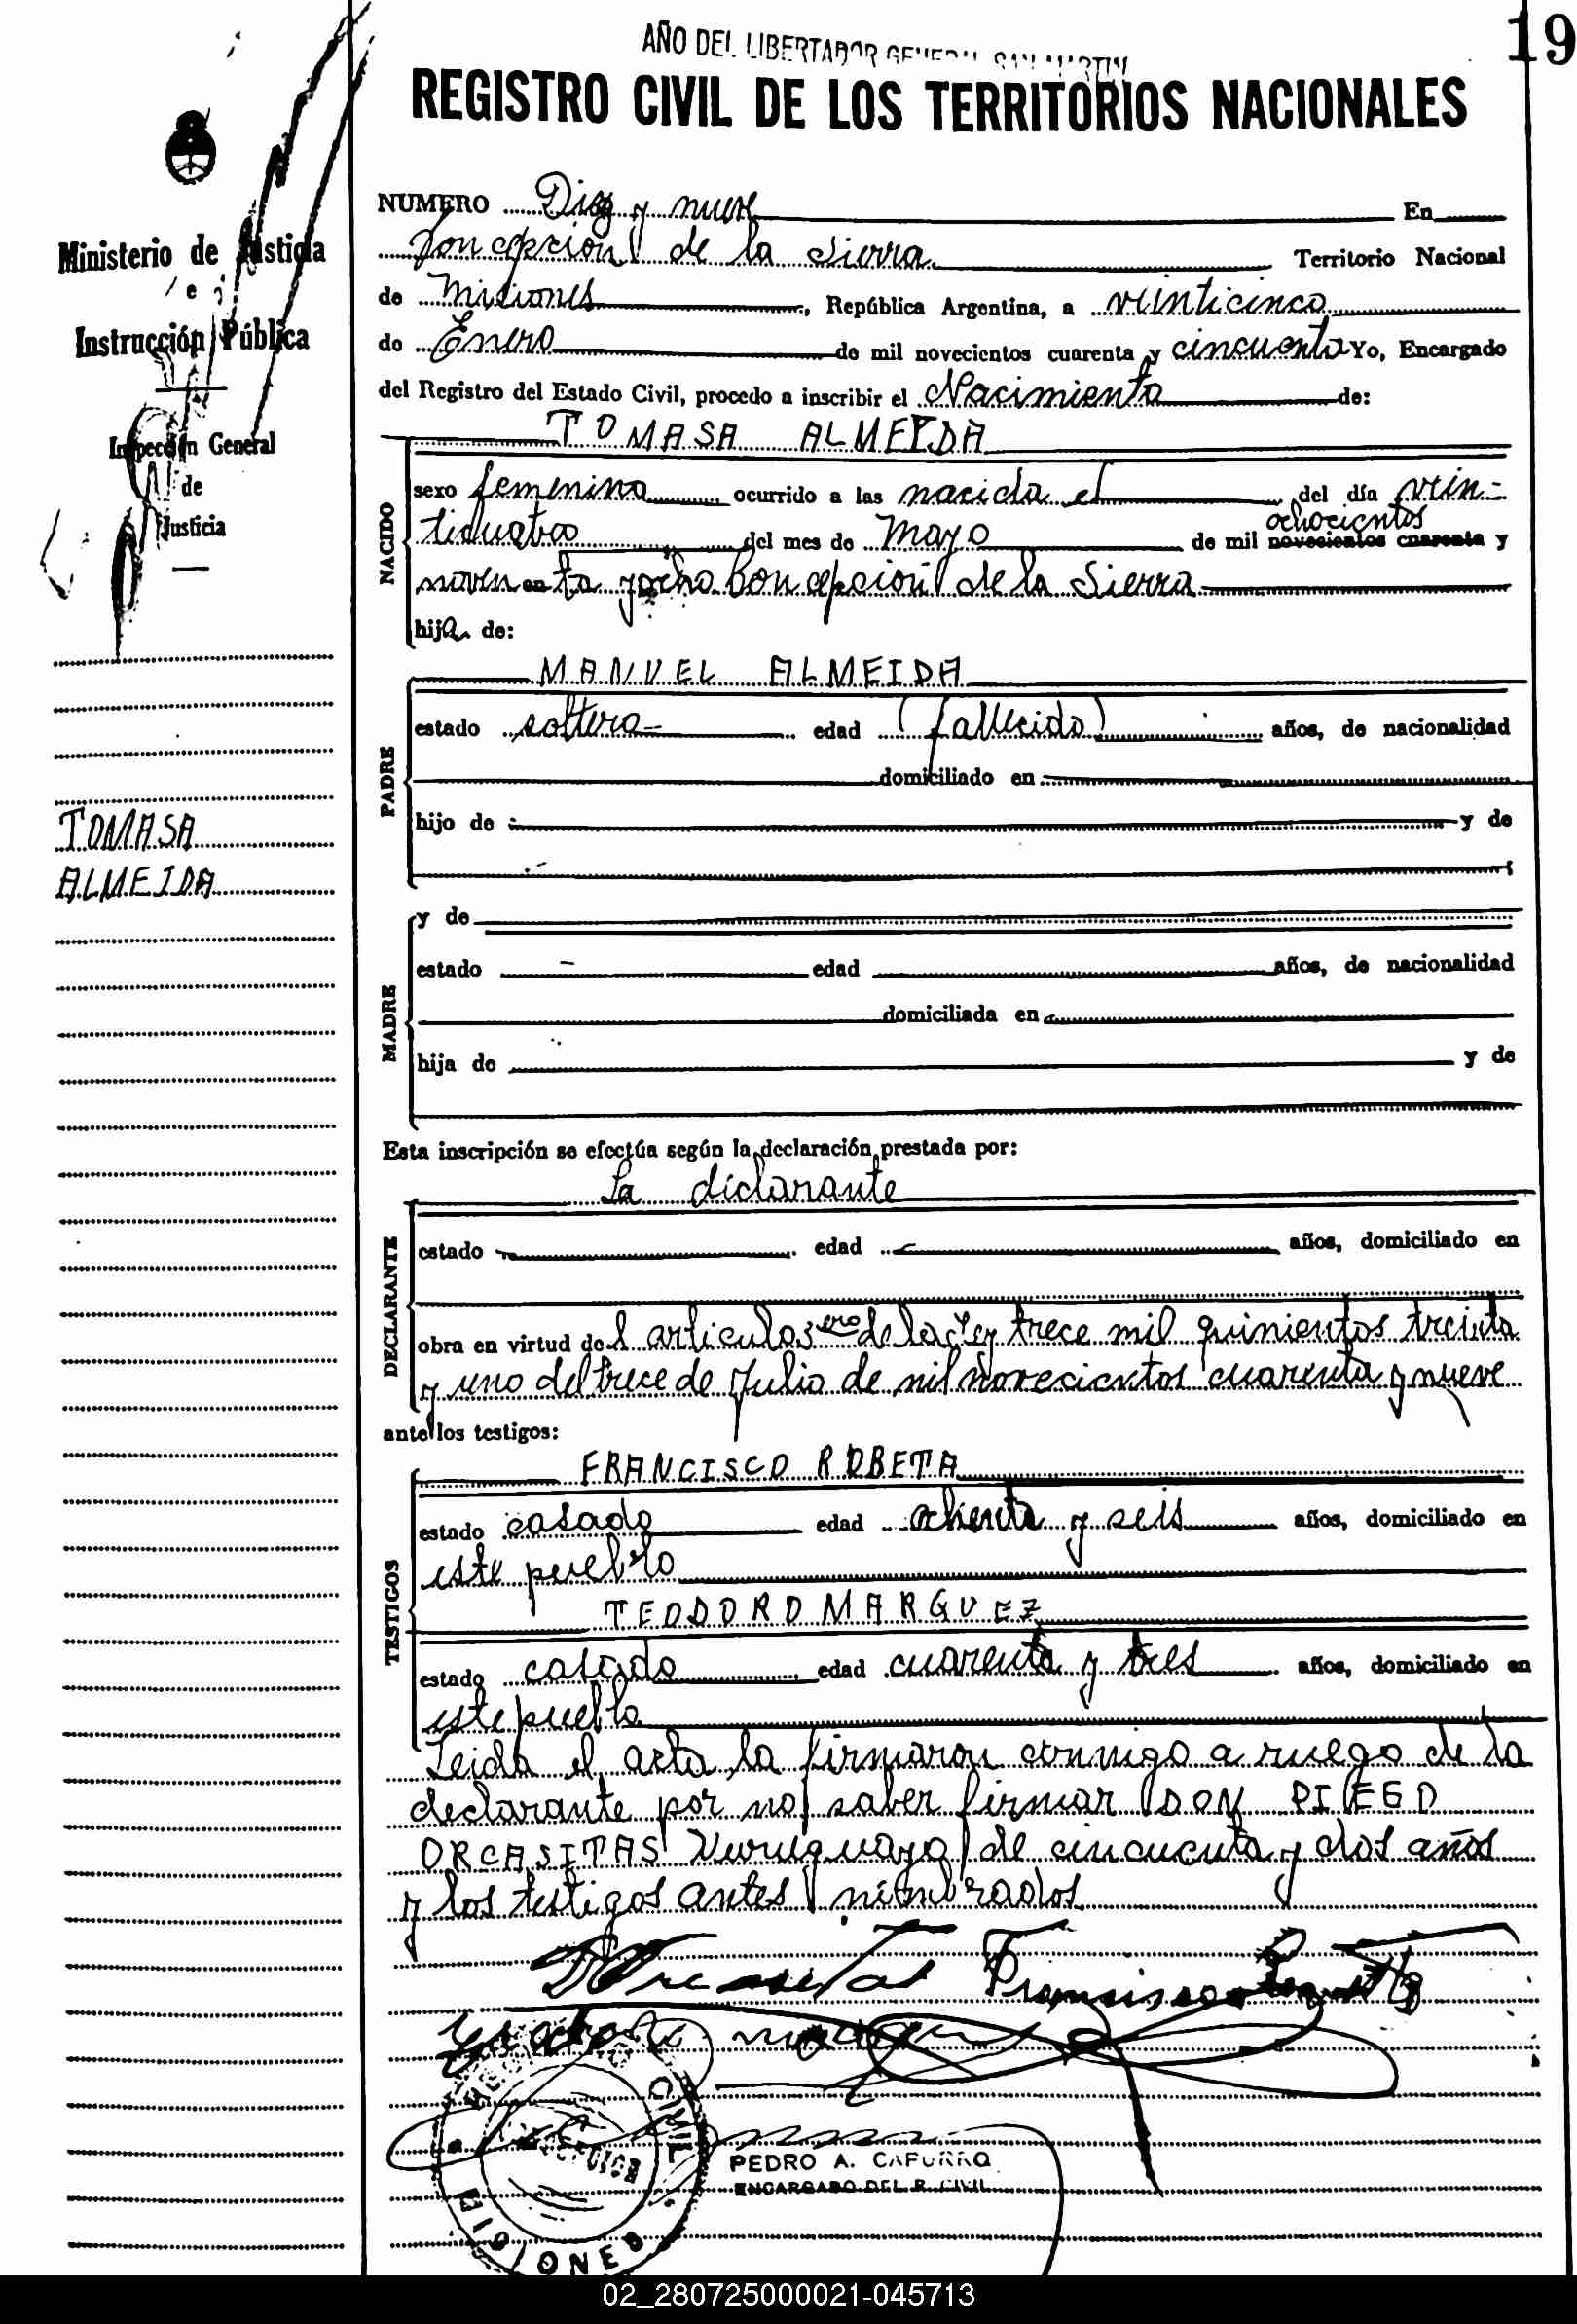 AÑO DEL LIBERTADOR GENERAL SAN MARTIN
19
REGISTRO CIVIL DE LOS TERRITORIOS NACIONALES
Ministerio de Justicia
e
Instrucción Pública
Inspección General
de
Justicia
TOMASA
ALMEIDA
NUMERO Diez y nueve En
Concepcion de la Sierra Territorio Nacional
de Misiones, República Argentina, a veinticinco
de Enero de mil novecientos cuarenta y cincuenta Yo, Encargado
del Registro del Estado Civil, procedo a inscribir el Nacimiento de:
TOMASA ALMEIDA
NACIDO
sexo femenino ocurrido a las nacida el del día vein-
ticuatro del mes de Mayo de mil ochocientos novecientos cuarenta y
noventa y ocho Concepcion de la Sierra
hija de:
MANUEL ALMEIDA
PADRE
estado soltero edad (fallecido) años, de nacionalidad
domiciliado en
hijo de y de
MADRE
y de
estado edad años, de nacionalidad
domiciliada en
hija de y de
Esta inscripción se efectúa según la declaración prestada por:
La declarante
DECLARANTE
estado edad años, domiciliado en
obra en virtud del articulo 3ero de la Ley trece mil quinientos treinta
y uno del trece de Julio de mil novecientos cuarenta y nueve
ante los testigos:
TESTIGOS
FRANCISCO ROBETA
estado casado edad ochenta y seis años, domiciliado en
este pueblo
TEODORO MARQUEZ
estado casado edad cuarenta y tres años, domiciliado en
este pueblo
Leida el acta la firmaron conmigo a ruego de la
declarante por no saber firmar DON DIEGO
ORCASITAS Uuruguayo de cincuenta y dos años
y los testigos antes nombrados.
Francisco
CIVIL
MISIONES
PEDRO A. CAFURRO
ENCARGADO DEL R. CIVIL
02_280725000021-045713